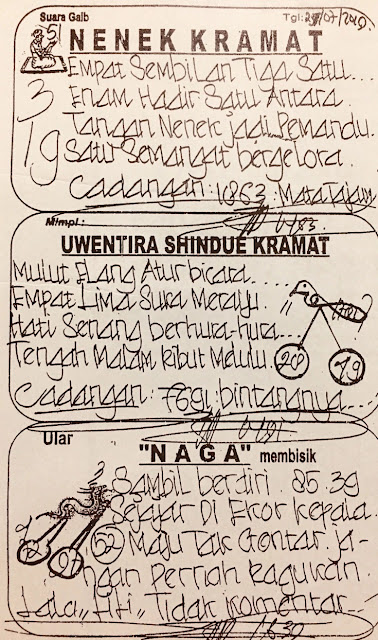 Suara Gaib
Tgl: 27/07/2019
51
NENEK KRAMAT
Empat Sembilan Tiga Satu....
3
Enam Hadir Satu Antara.
Tangan Nenek jadi Pemandu.
19
Satu Semangat bergelora.
Cadangan: 1863. Mata Tajam
Mimpi:
UWENTIRA SHINDUE KRAMAT
Mulut Elang Atur bicara....
Empat Lima Suka Merayu.
Hati Senang berhura-hura...
Tengah Malam Ribut Melulu.
20
19
Cadangan: 7691: bintangnya...
Ular
"NAGA" membisik
Sambil berdiri. 85.39
Sejajar Di Ekor Kepala.
52 Maju Tak Gentar. ja-
ngan Pernah Ragukan.
97
Lala,, Fifi,, Tidak Komentar...